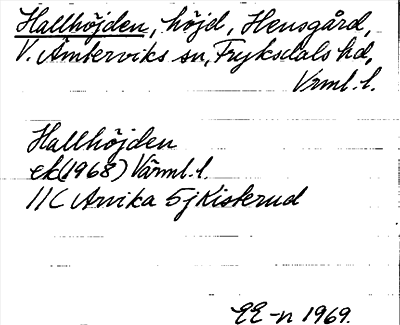 Hallhöjden, höjd, Hensgård,
V. Ämterviks sn, Fryksdals hd,
Vrml. l.
Hallhöjden
ek (1968) Värml. l.
11C Arvika 5j Kisterud
EE-n 1969.